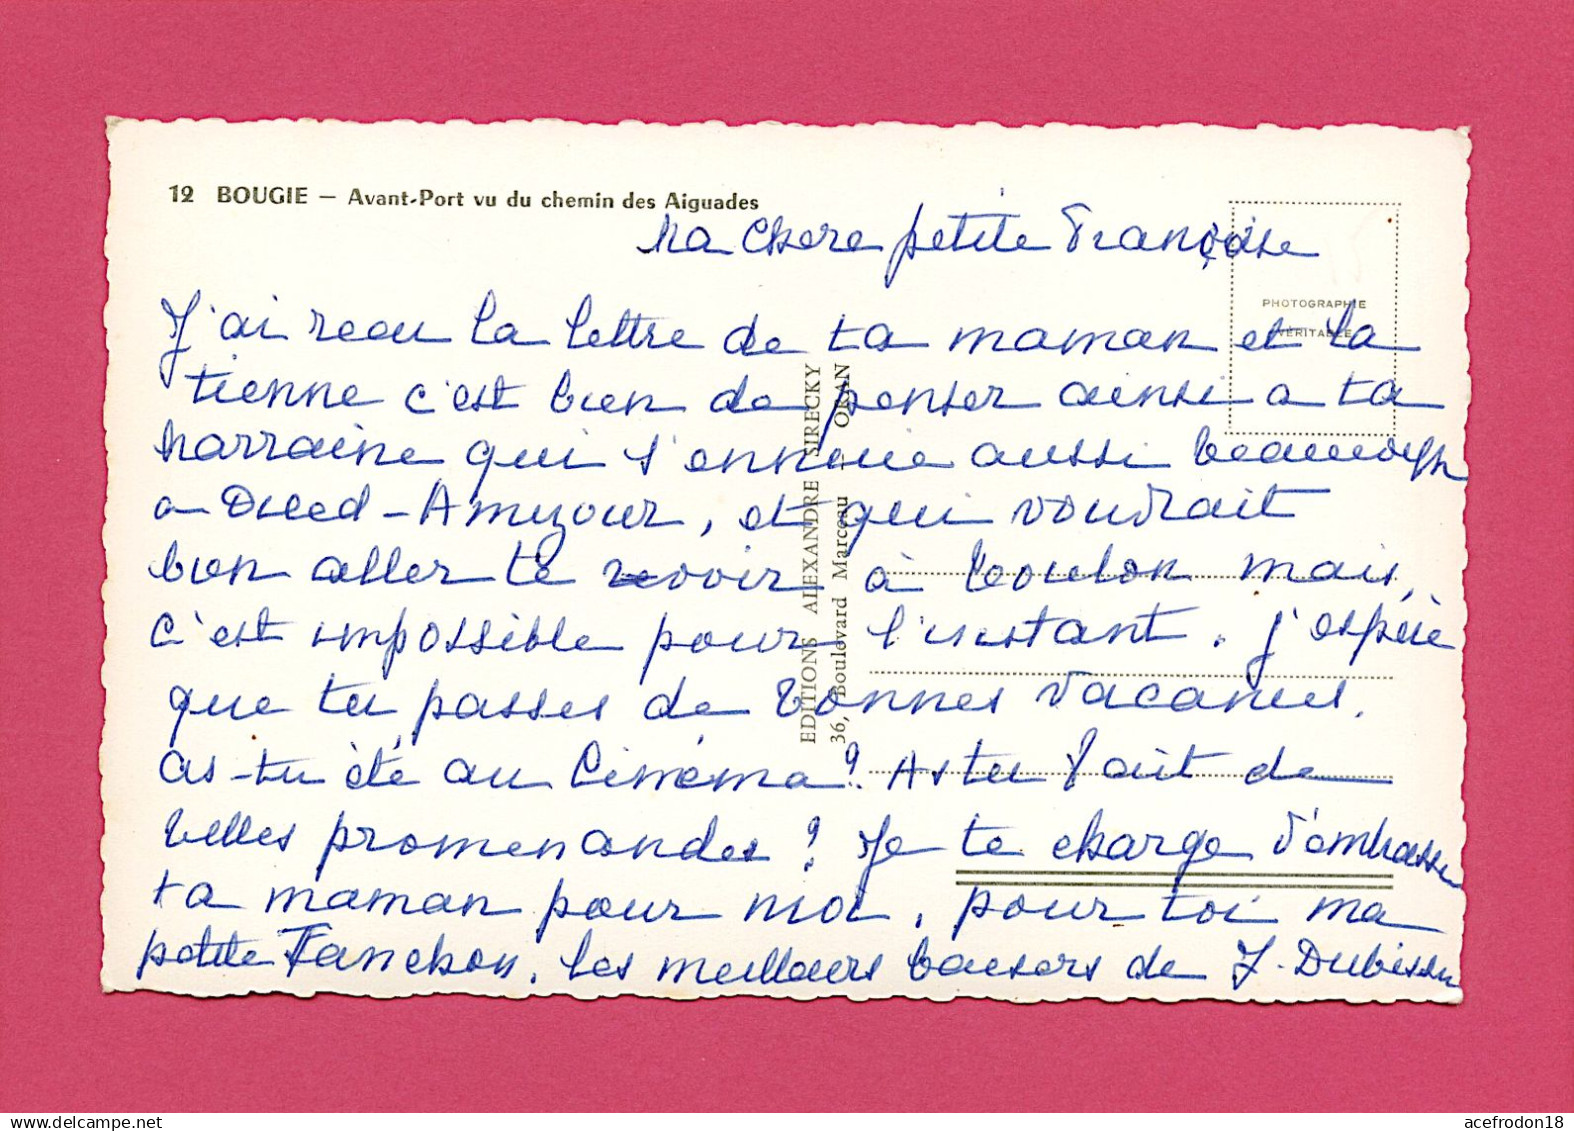 12 BOUGIE — Avant-Port vu du chemin des Aiguades
Ma Chere petite Françoise
PHOTOGRAPHIE
VÉRITABLE
J'ai recu la lettre de ta maman et la
tienne c'est bien de penser ainsi a ta
Marraine qui s'ennuie aussi beaucoup
a Oued-Amizour, et qui voudrait
bien aller te revoir à Toulon mais,
c'est impossible pour l'instant. J'espère
que tu passes de bonnes vacances.
as-tu été au Cinéma? As tu fait de
belles promenandes? Je te charge d'embrasser
ta maman pour moi, pour toi ma
petite Fanchon. les meilleurs baisers de J. Dubissu
EDITIONS ALEXANDRE SIRECKY
36, Boulevard Marceau — ORAN
www.delcampe.net
acefrodon18